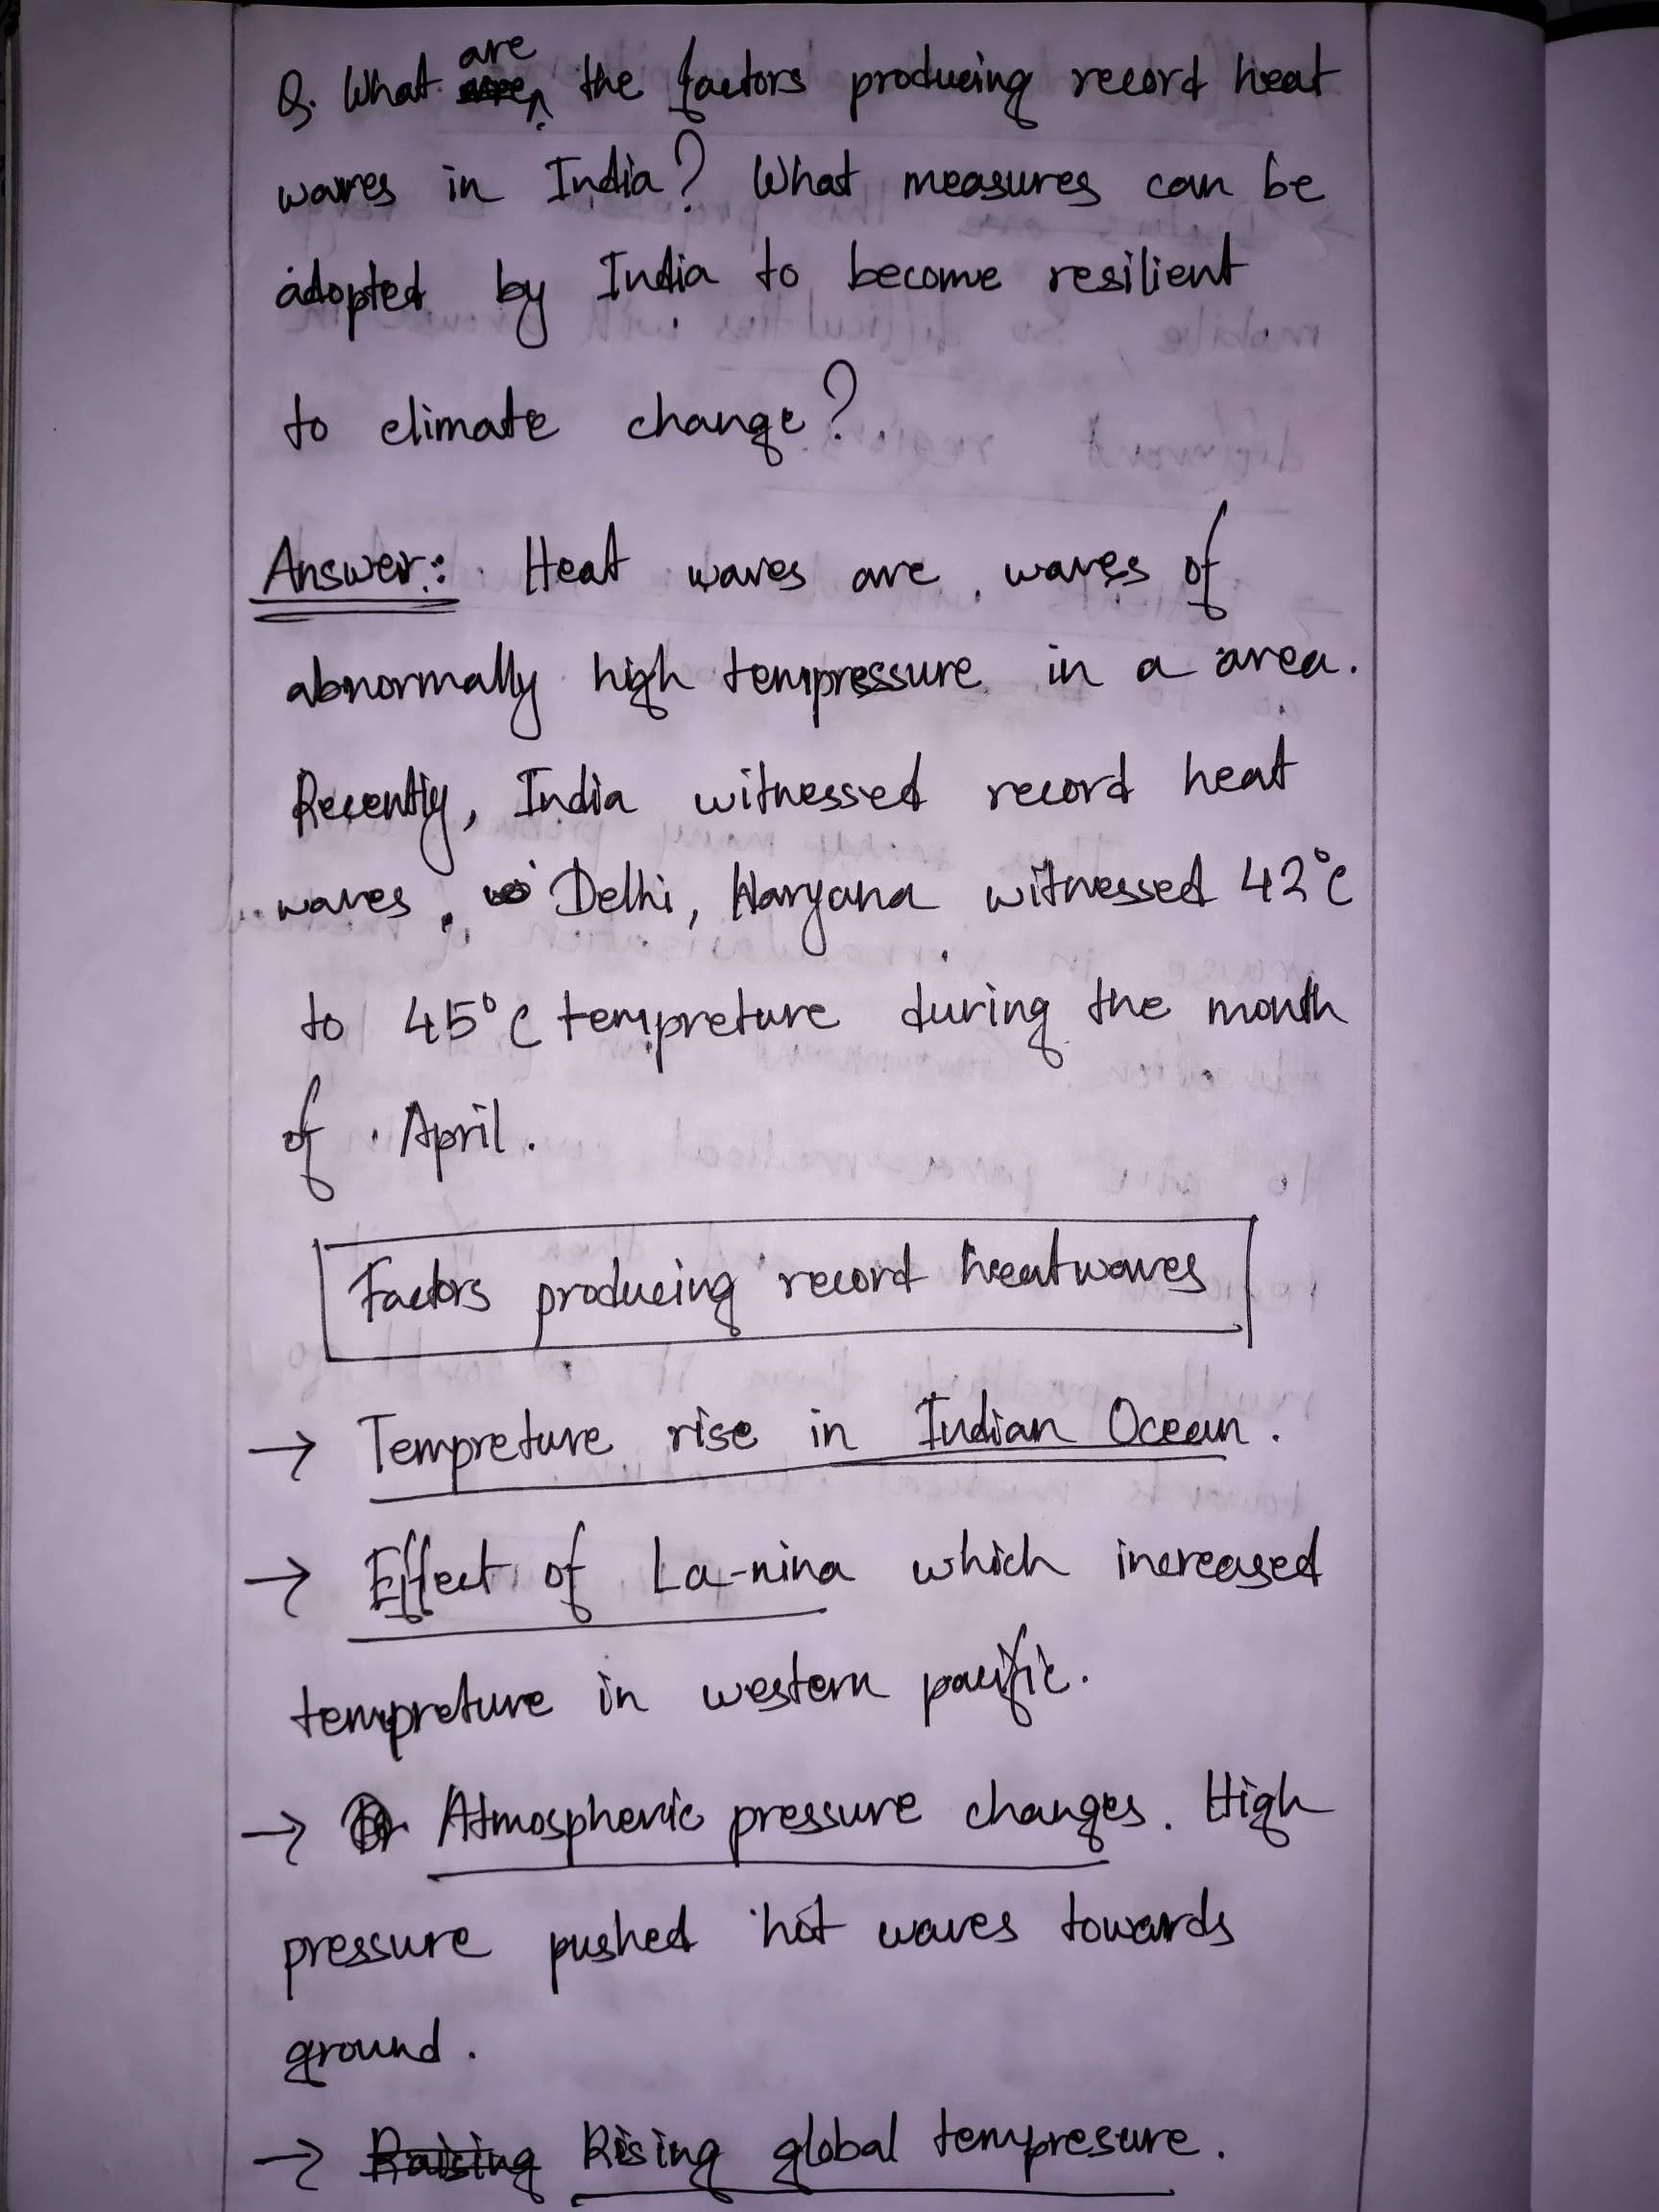 Q. What are the factors producing record heat
waves in India? What measures can be
adopted by India to become resilient
to climate change?
Answer: Heat waves are waves of
abnormally high tempressure in a area.
Recently, India witnessed record heat
waves. Delhi, Haryana witnessed 42°C
to 45°C tempreture during the month
of April.
Factors producing record heatwaves
→ Tempreture rise in Indian Ocean.
→ Effect of La-nina which increased
tempreture in western pacific.
→ Atmospheric pressure changes. High
pressure pushed hot waves towards
ground.
→ Raising Rising global tempresure.